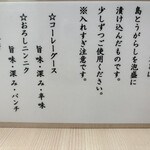 島とうがらしを泡盛に
漬け込んだものです。
少しずつご使用ください。
※入れすぎ注意です。
☆コーレーグース
旨味・深み・辛味
☆おろしニンニク
旨味・深み・パンチ